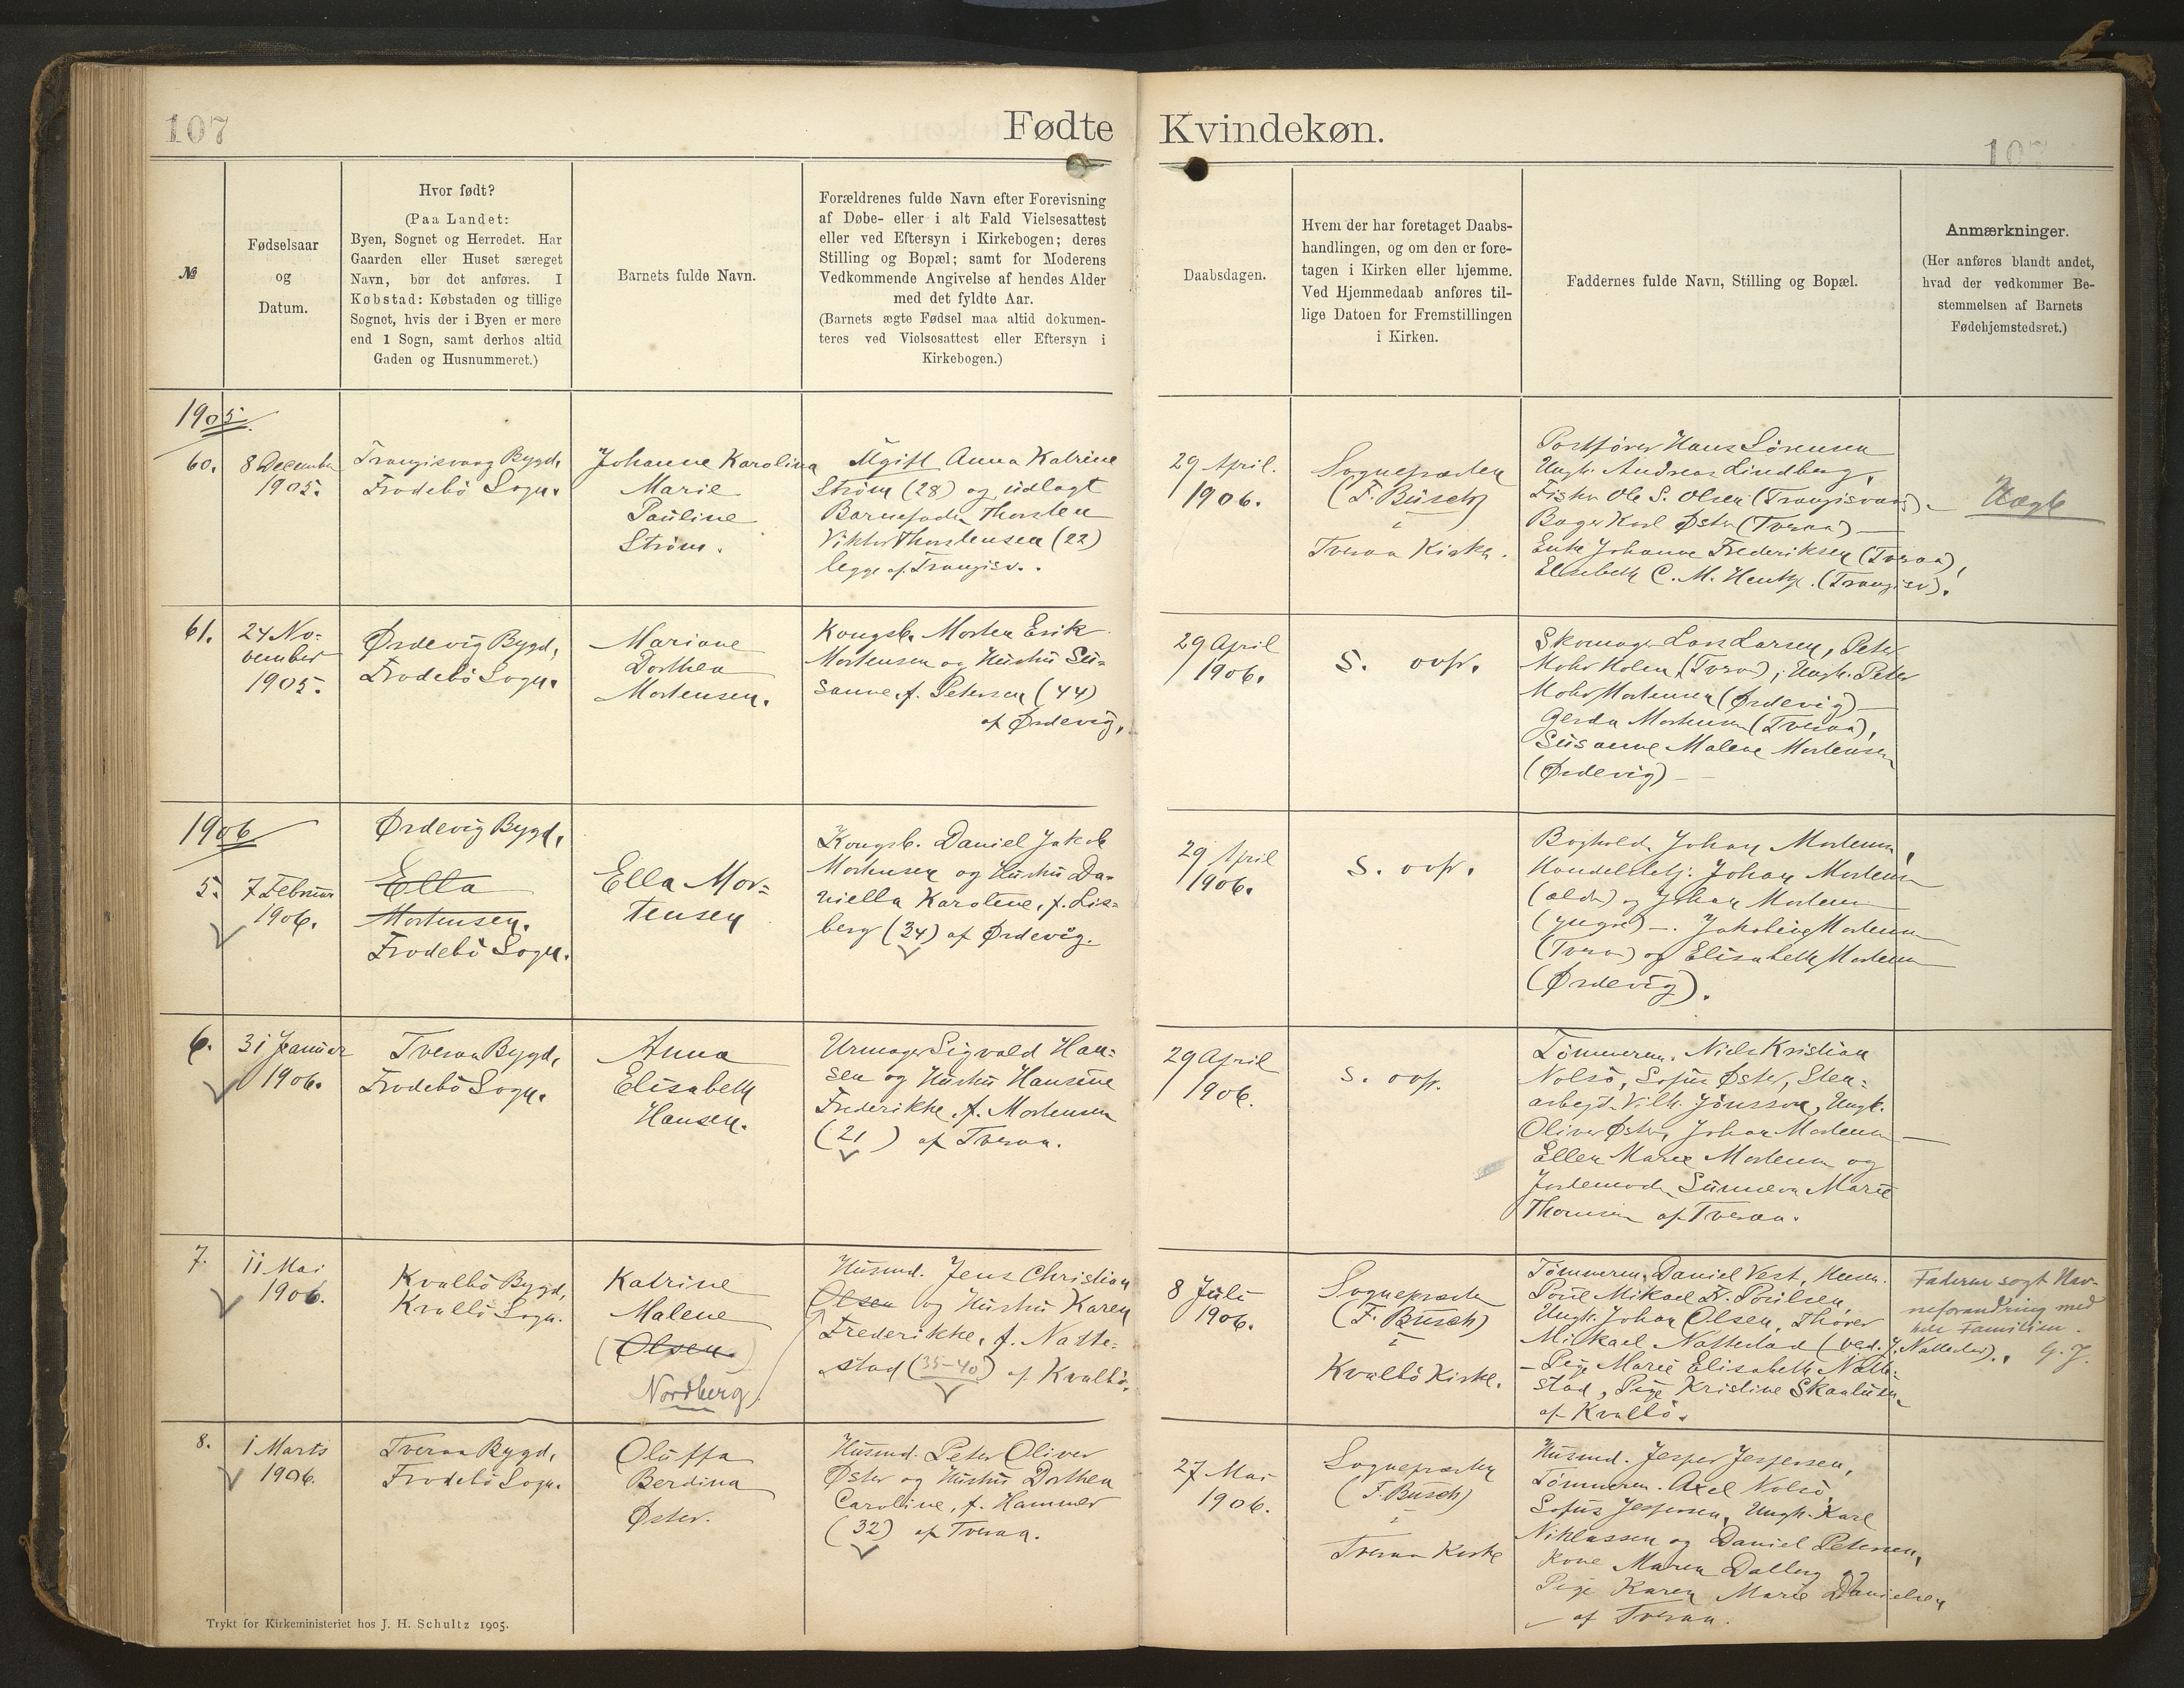 107
Fødte
Kvindekøn.
107
№
Fødselsaar
og
Datum.
Hvor født?
(Paa Landet:
Byen, Sognet og Herredet. Har
Gaarden eller Huset særeget
Navn, bør det anføres. I
Købstad: Købstaden og tillige
Sognet, hvis der i Byen er mere
end 1 Sogn, samt derhos altid
Gaden og Husnummeret.)
Barnets fulde Navn.
Forældrenes fulde Navn efter Forevisning
af Døbe- eller i alt Fald Vielsesattest
eller ved Eftersyn i Kirkebogen; deres
Stilling og Bopæl; samt for Moderens
Vedkommende Angivelse af hendes Alder
med det fyldte Aar.
(Barnets ægte Fødsel maa altid dokumen-
teres ved Vielsesattest eller Eftersyn i
Kirkebogen.)
Daabsdagen.
Hvem der har foretaget Daabs-
handlingen, og om den er fore-
tagen i Kirken eller hjemme.
Ved Hjemmedaab anføres til-
lige Datoen for Fremstillingen
i Kirken.
Faddernes fulde Navn, Stilling og Bopæl.
Anmærkninger.
(Her anføres blandt andet,
hvad der vedkommer Be-
stemmelsen af Barnets
Fødehjemstedsret.)
1905.
60.
8 December
1905.
Trangisvaag Bygd,
Frodebö Sogn.
Johanne Karolina
Marie
Pauline
Ström.
Ugift Anna Katrine
Ström (28) og udlagt
Barnefader Thorsten
Viktor Thorstensen (22)
begge af Trangisv.
29 April.
1906.
Sognepræsten
(F. Busch)
i
Tveraa Kirke.
Postfører Hans Sørensen
Ungk. Andreas Lindberg,
Fisker Ole S. Olsen (Trangisvaag) -
Bager Karl Øster (Tveraa) -
Enke Johanne Frederiksen (Tveraa),
Elisabeth C. M. Hentze. (Trangisv).
Uægte
61.
24 No-
vember
1905.
Ørdevig Bygd,
Frodebö Sogn.
Mariane
Dorthea
Mortensen.
Kongsb. Morten Erik
Mortensen og Hustru Su-
sanne, f. Petersen (44)
af Ørdevig.
29 April
1906.
S. ovfr.
Skomager Lars Larsen, Peter
Mohr Holm (Tvera); Ungk. Peter
Mohr Mortensen (Ørdevig) -
Gerda Mortensen (Tveraa),
Susanne Malene Mortensen
(Ørdevig) -
1906
5.
7 Februar
1906.
Ørdevig Bygd,
Ella
Mortensen.
Frodebö Sogn.
Ella Mor-
tensen
Kongsb. Daniel Jakob
Mortensen og Hustru Da-
niella Karolene, f. Lis-
berg (34) af Ørdevig.
29 April
1906.
S. ovfr.
Boghold. Johan Mortensen,
Handelsbetj. Johan Mortensen
(ældre) og Johan Mortensen
(yngre) -. Jakobine Mortensen
(Tvera) og Elisabeth Mortensen
(Ørdevig).
6.
31 Januar
1906.
Tveraa Bygd,
Frodebö Sogn.
Anna
Elisabeth
Hansen.
Urmager Sigvald Han-
sen og Hustru Hansine
Frederikke, f. Mortensen
(21) af Tveraa.
29 April
1906.
S. ovfr.
Tömmerm. Niels Kristian
Nolsö, Sofus Øster, Sten-
arbejd. Vilh. Jónsson, Ungk.
Oliver Øster, Johan Mortensen -
Ellen Marie Mortensen og
Jordemoder Sunneva Marie
Thomsen af Tveraa.
7.
11 Mai
1906.
Kvalbö Bygd,
Kvalbö Sogn.
Katrine
Malene
(Olsen)
Nordberg
Husmd. Jens Christian
Olsen og Hustru Karen
Frederikke, f. Natte-
stad (35-40) af Kvalbö.
8 Juli
1906.
Sognepræsten
(F. Busch)
i
Kvalbö Kirke.
Tömmerm. Daniel Vest,
Poul Mikael F. Poulsen,
Ungk. Johan Olsen, Thorer
Mikael Nattestad (ved J. Nattestad).
- Pige Marie Elisabeth Natte-
stad, Pige Kristine Skaalum
af Kvalbö.
Faderen søgt Nav-
neforandring med
hele Familien.
G. J.
8.
1 Marts
1906.
Tveraa Bygd,
Frodebö Sogn.
Oluffa
Berdina
Øster.
Husmd. Peter Oliver
Øster og Hustru Dorthea
Caroline, f. Hammer
(32) af Tveraa.
27 Mai
1906.
Sognepræsten
(F. Busch)
i
Tveraa Kirke
Husmd. Jesper Jespersen,
Tömmerm. Axel Nolsö,
Sofus Jespersen, Ungk. Karl
Niklassen og Daniel Petersen,
Kone Maren Dalberg og
Pige Karen Marie Danielsen
- af Tveraa.
Trykt for Kirkeministeriet hos J. H. Schultz 1905.